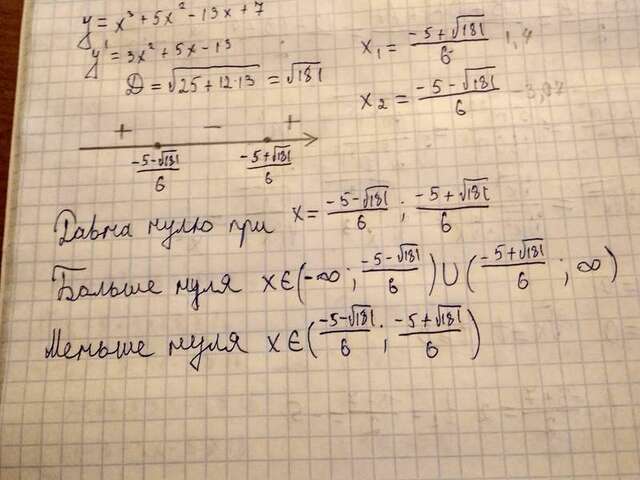 y = x³ + 5x² - 13x + 7
y' = 3x² + 5x - 13
D = √25 + 12·13 = √181
x₁ = (-5 + √181)/6 1,4
x₂ = (-5 - √181)/6
+ - +
(-5-√181)/6 (-5+√181)/6
Равна нулю при x = (-5-√181)/6 ; (-5+√181)/6
Больше нуля x ∈ (-∞ ; (-5-√181)/6) ∪ ((-5+√181)/6 ; ∞)
Меньше нуля x ∈ ((-5-√181)/6 ; (-5+√181)/6)